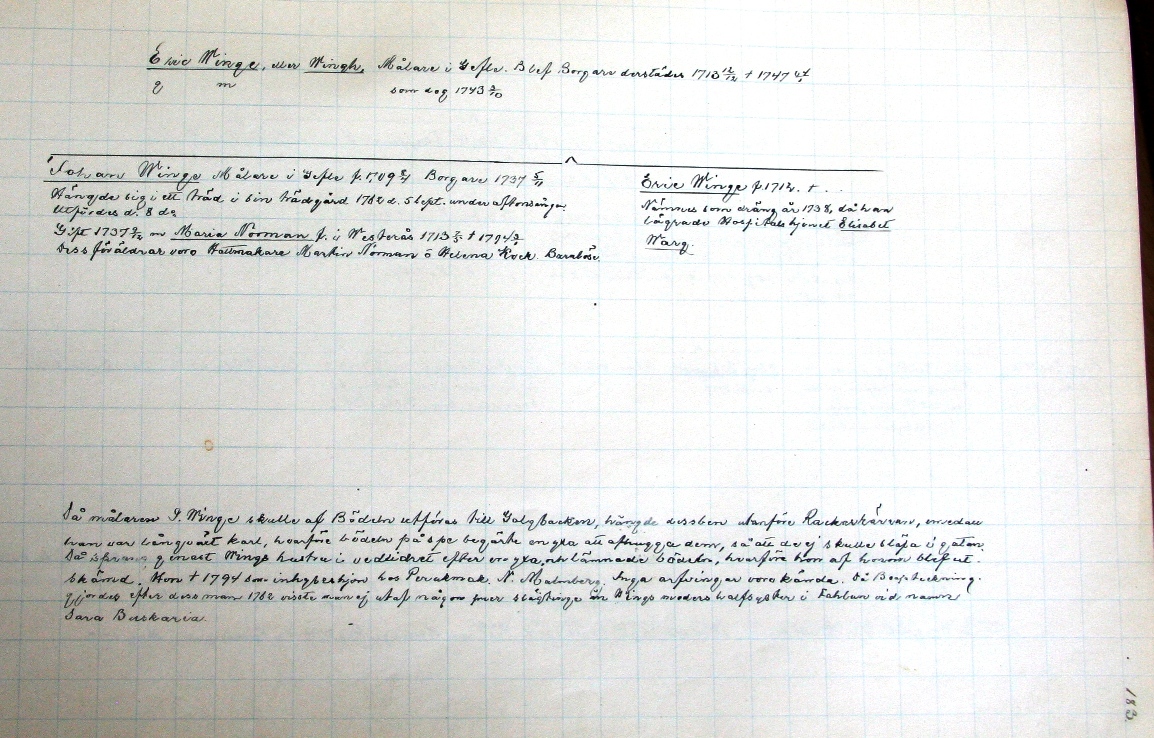 Eric Winge, eller Wingh, Målare i Gefle. Blef Borgare derstädes 1713 12/12 † 1747
g m som dog 1743 3/10
Johan Winge Målare i Gefle f. 1709 Borgare 1737 5/11
Hängde sig i ett träd i sin trädgård 1782 d. 5 Sept. under aftonsången.
Utfördes d. 8 do
Gift 1737 m Maria Norman f. i Westerås 1713 † 1794
Dess föräldrar voro Hattmakare Martin Norman o Helena Kock. Barnlöse.
Eric Winge f. 1712. † . .
Nämnes som dräng år 1738, då han
lägrade Hospitalshjonet Elisabet
Warg.
Då målaren J. Winge skulle af Bödeln utföras till Galgbacken, hängde dess ben utanföre Rackarkärran, medan
han var lång växt karl, hvarföre bödeln på spe begärte en yxa att afhugga dem, så att de ej skulle släpa i gatan.
Då sprang genast Wings hustru i vedlidret efter en yxa, och lämnade bödeln, hvarföre hon af honom blef ut-
skämd. Hon † 1794 som inhyseshjon hos Perukmak. N. Malmberg. Inga arfvingar voro kända. Då Bouppteckning
gjordes efter dess man 1782 visste man ej utaf någon fler släktinge än Wings moders halfsyster i Fahlun vid namn
Sara Buskaria.
183